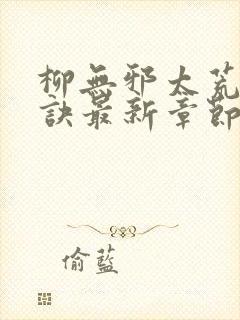 柳無邪太荒
訣最新章節
偷藍